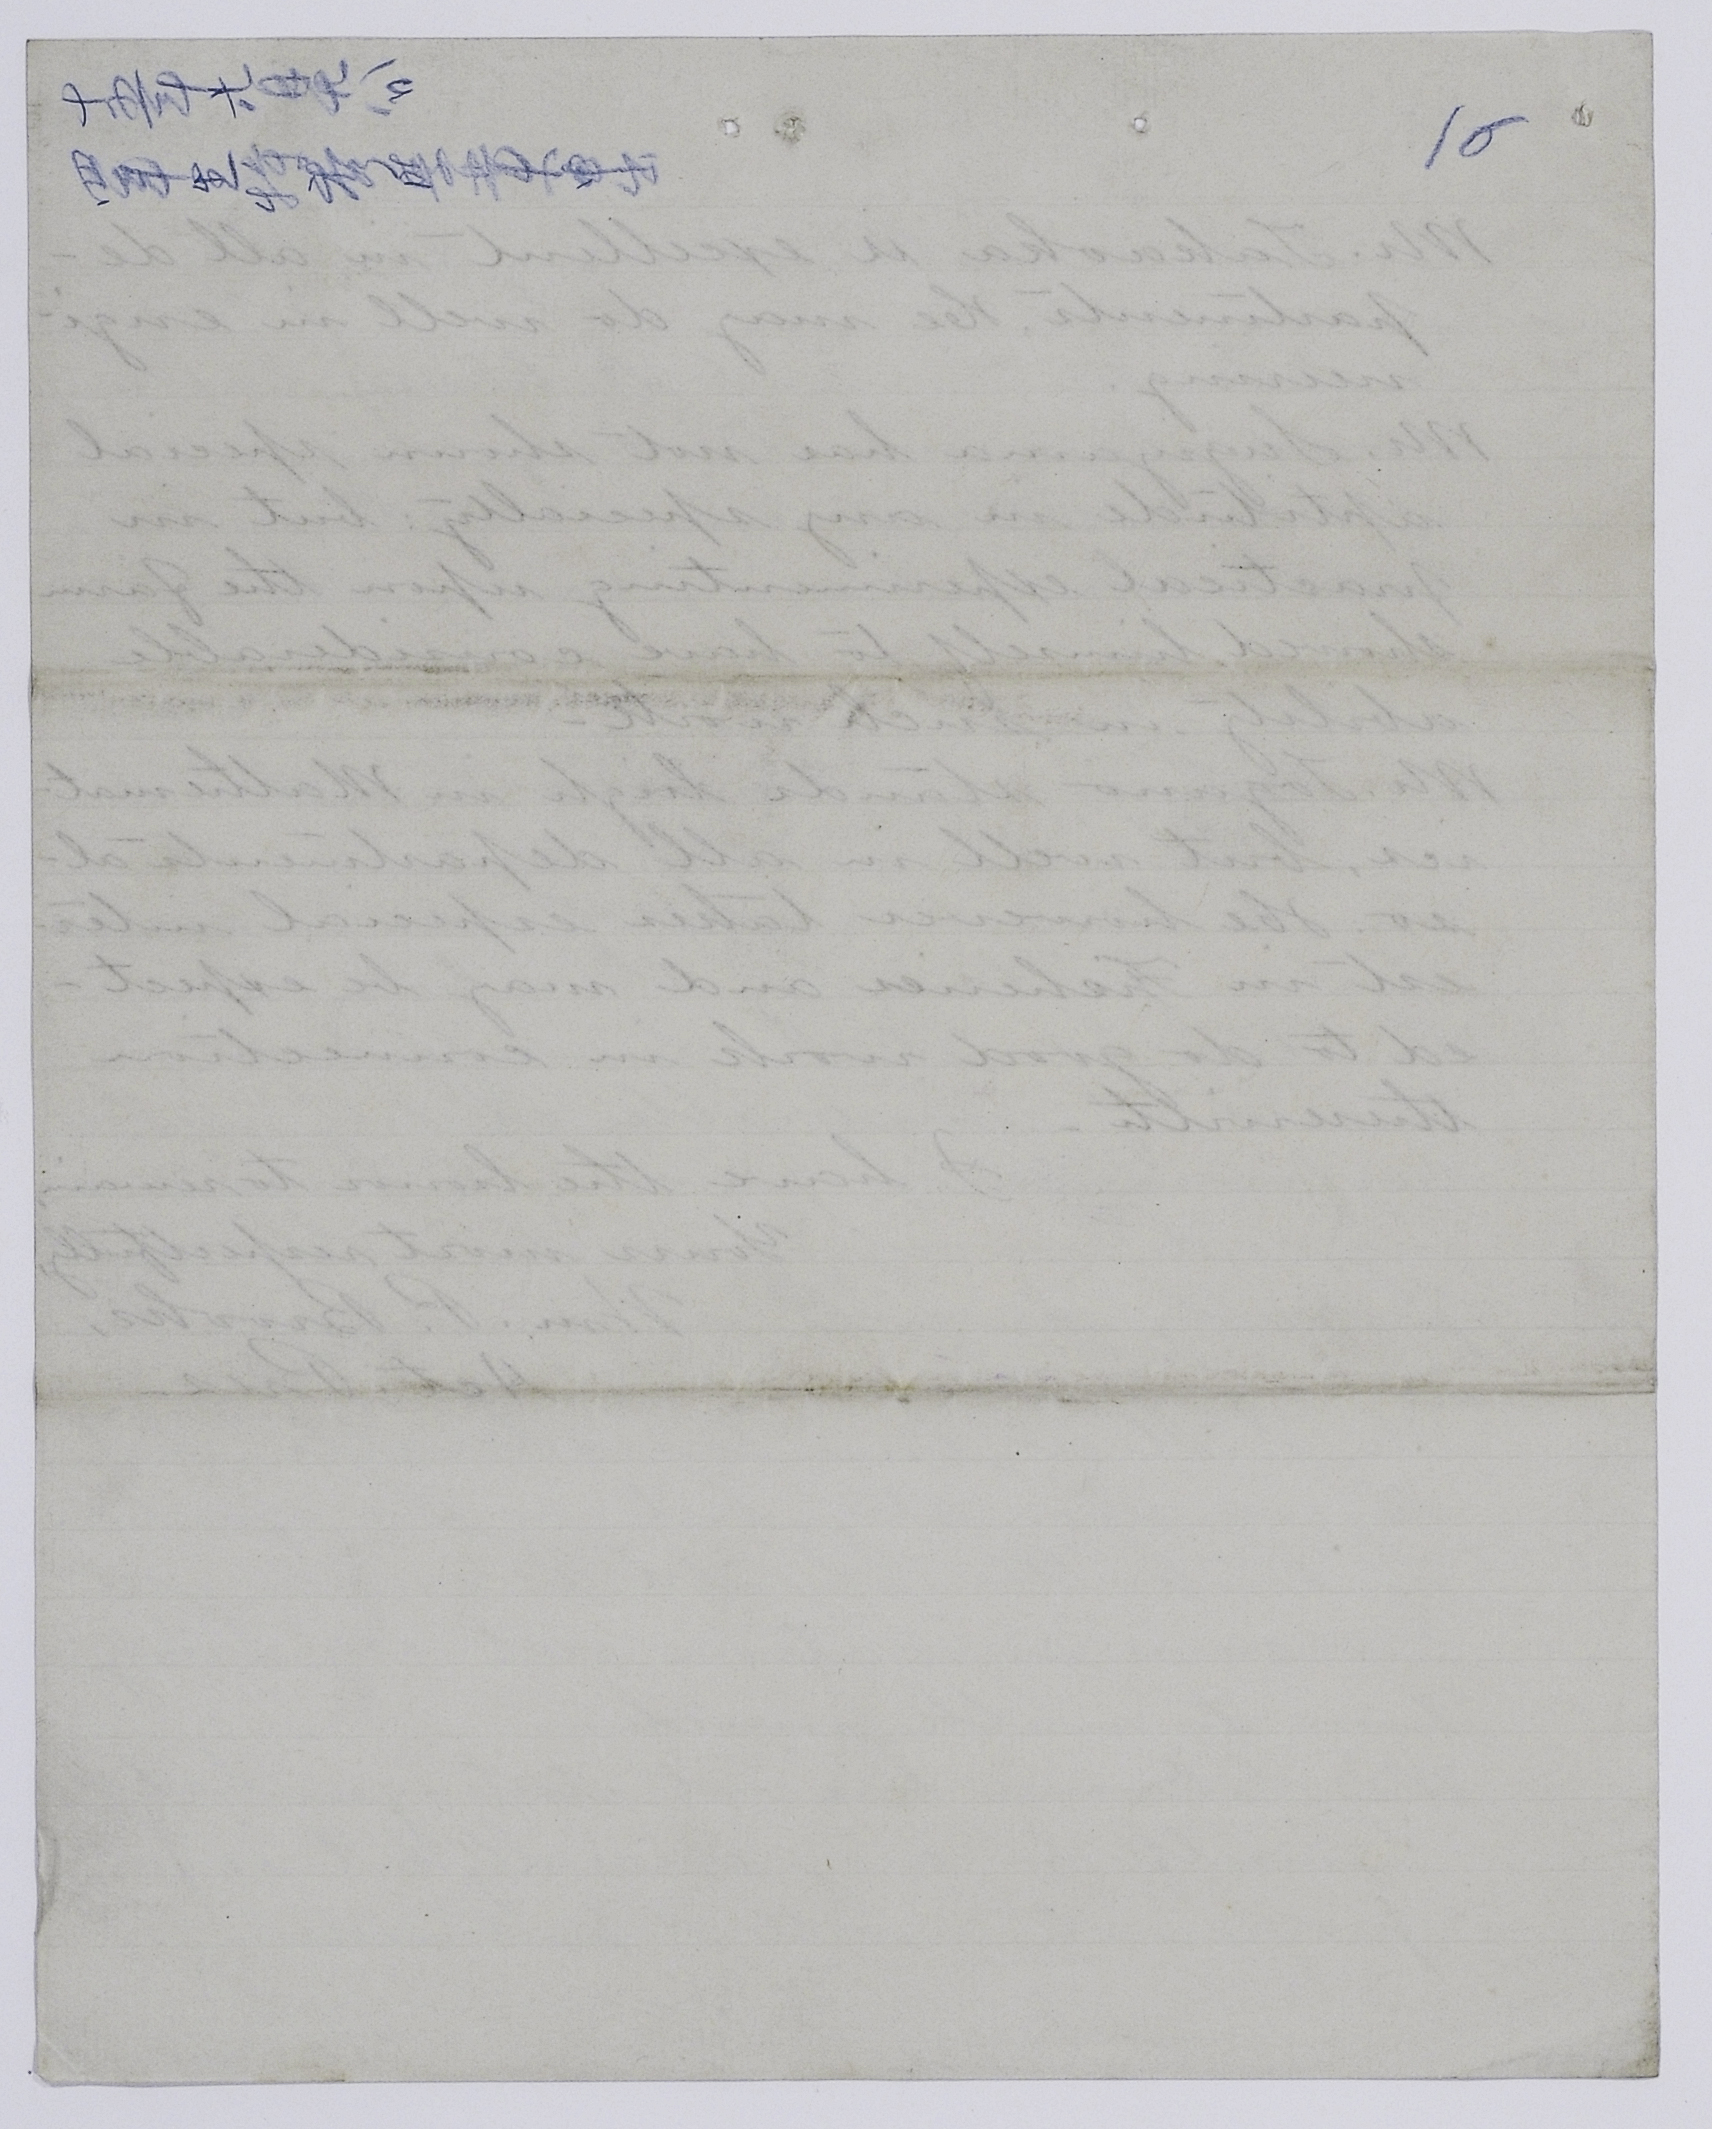 10
Mr. Takaoka is excellent in all de-
partments. He may do well in engi-
neering.
Mr. Sugiyama has not shown special
aptitude in any specialty; but in
practical experimenting upon the farm
showed himself to have considerable
ability in such work.
Mr. Togano stands high in Mathemat-
ics, but well in all departments al-
so. He however takes especial inter-
est in Fisheries and may be expect-
ed to do good work in connection
therewith.
I have the honor to remain,
Yours most respectfully,
Wm. P. Brooks,
Act. Pres.